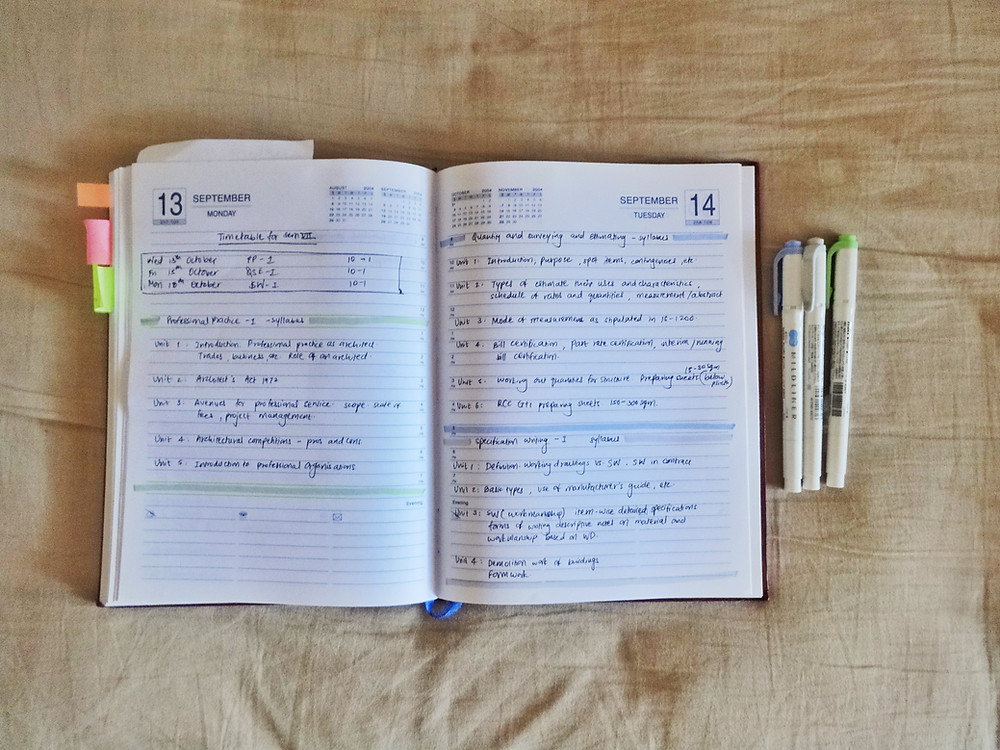 13
SEPTEMBER
MONDAY
AUGUST 2004
SEPTEMBER
Timetable for sem VII
Wed 13th October PP - I 10 - 1
Fri 15th October QSE - I 10-1
Mon 18th October SW - I 10-1
Professional Practice - I - syllabus
Unit 1: Introduction, Professional practice as architect
Trades, business, etc. Role of an architect.
Unit 2: Architect's Act 1972
Unit 3: Avenues for professional service. scope. scale of
fees, project management.
Unit 4: Architectural competitions - pros and cons.
Unit 5: Introduction to professional Organisations
Evening
OCTOBER 2004
NOVEMBER 2004
SEPTEMBER
TUESDAY
14
Quantity and surveying and estimating - syllabus
Unit 1: Introduction, purpose, spot items, contingencies, etc
Unit 2: Types of estimate their uses and characteristics,
schedule of rates and quantities, measurement/abstract
Unit 3: Mode of measurement as stipulated in IS-1200.
Unit 4: Bill certification, Part rate certification, interim/running
bill certification.
15-30sqm
Unit 5: Working out quantities for structure Preparing sheets (below
plinth)
Unit 6: RCC preparing sheets 150-300sqm.
Specification writing - I syllabus
Unit 1: Definition. Working drawings vs. SW. SW in contract
Unit 2: Basic types, use of manufacturer's guide, etc.
Evening
Unit 3: SW (workmanship) item-wise detailed specifications
forms of writing descriptive notes on material and
workmanship based on WD.
Unit 4: Demolition work of buildings
Formwork
MILDLINER